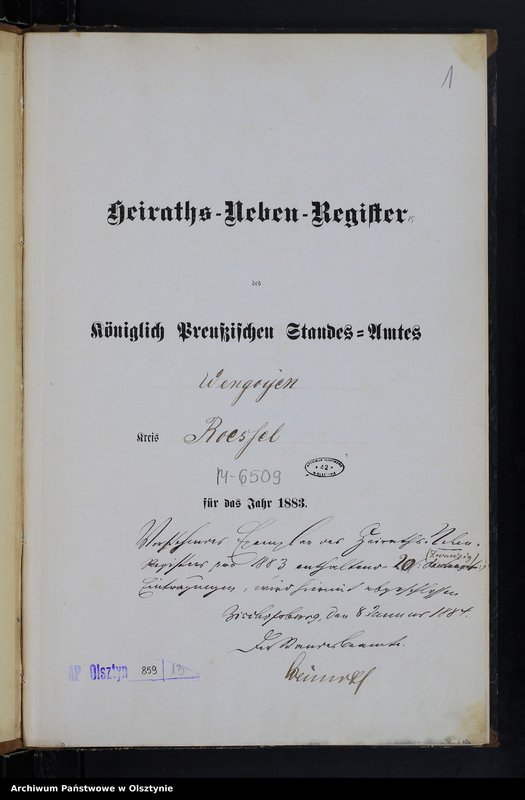 1
Heiraths-Neben-Register
des
Königlich Preußischen Standes-Amtes
Wengoyen
Kreis Roessel
M-6509
42
für das Jahr 1883.
Vorstehendes Exemplar des Heiraths-Neben-
Registers pro 1883 enthaltend 20 (zwanzig)
Eintragungen, wird hiermit abgeschlossen
Bischofsburg, den 8 Januar 1884.
Der Standesbeamte.
AP Olsztyn 859 | 15
Archiwum Państwowe w Olsztynie